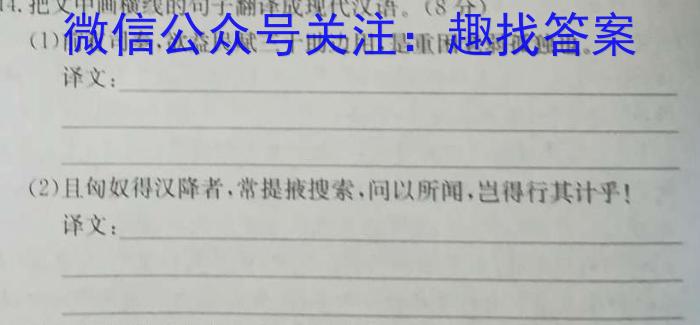 14.把文中画横线的句子翻译成现代汉语。(8分)
微信公众号关注：趣找答案
(1)
译文:
(2)且匈奴得汉降者,常提掖搜索,问以所闻,岂得行其计乎!
译文: